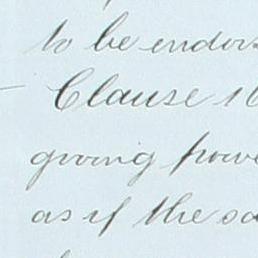 to be endors
Clause 16
giving powe
as if the sa